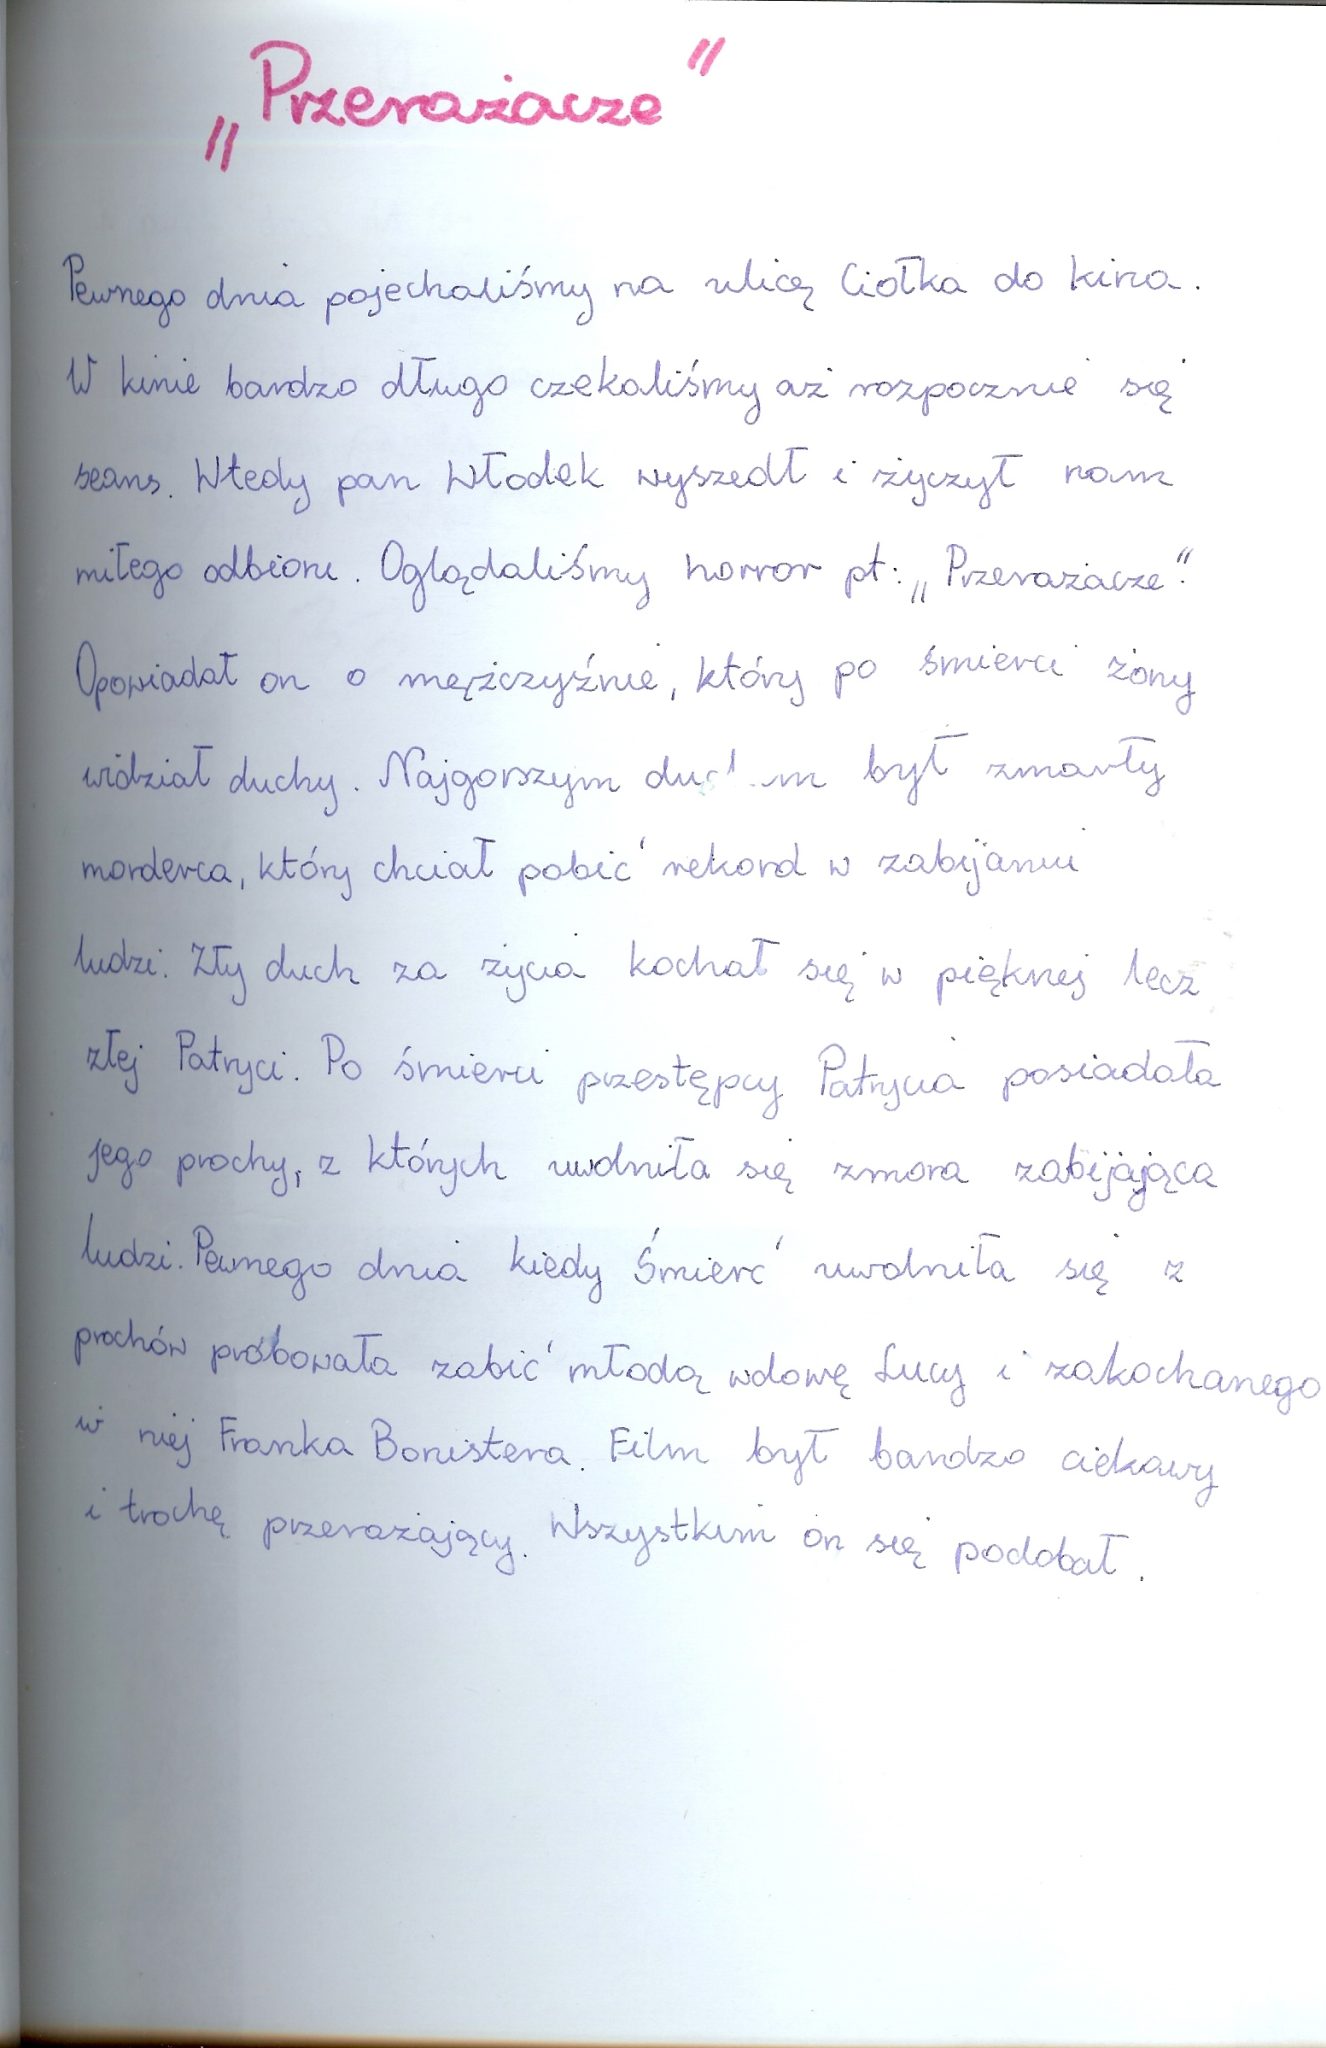 „Przerażacze"
Pewnego dnia pojechaliśmy na ulicę Ciołka do kina.
W kinie bardzo długo czekaliśmy aż rozpocznie się
seans. Wtedy pan Włodek wyszedł i życzył nam
miłego odbioru. Oglądaliśmy horror pt: „Przerażacze".
Opowiadał on o mężczyźnie, który po śmierci żony
widział duchy. Najgorszym był zmarły
morderca, który chciał pobić rekord w zabijaniu
ludzi. Zły duch za życia kochał się w pięknej lecz
złej Patryci. Po śmierci przestępcy Patrycia posiadała
jego prochy, z których uwolniła się zmora zabijająca
ludzi. Pewnego dnia kiedy Śmierć uwolniła się z
prochów próbowała zabić młodą wdowę Lucy i zakochanego
w niej Franka Banistera. Film był bardzo ciekawy
i trochę przerażający. Wszystkim on się podobał.